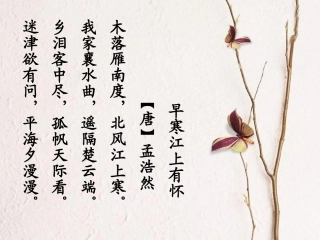 早寒江上有怀
【唐】孟浩然
木落雁南度，北风江上寒。
我家襄水曲，遥隔楚云端。
乡泪客中尽，孤帆天际看。
迷津欲有问，平海夕漫漫。